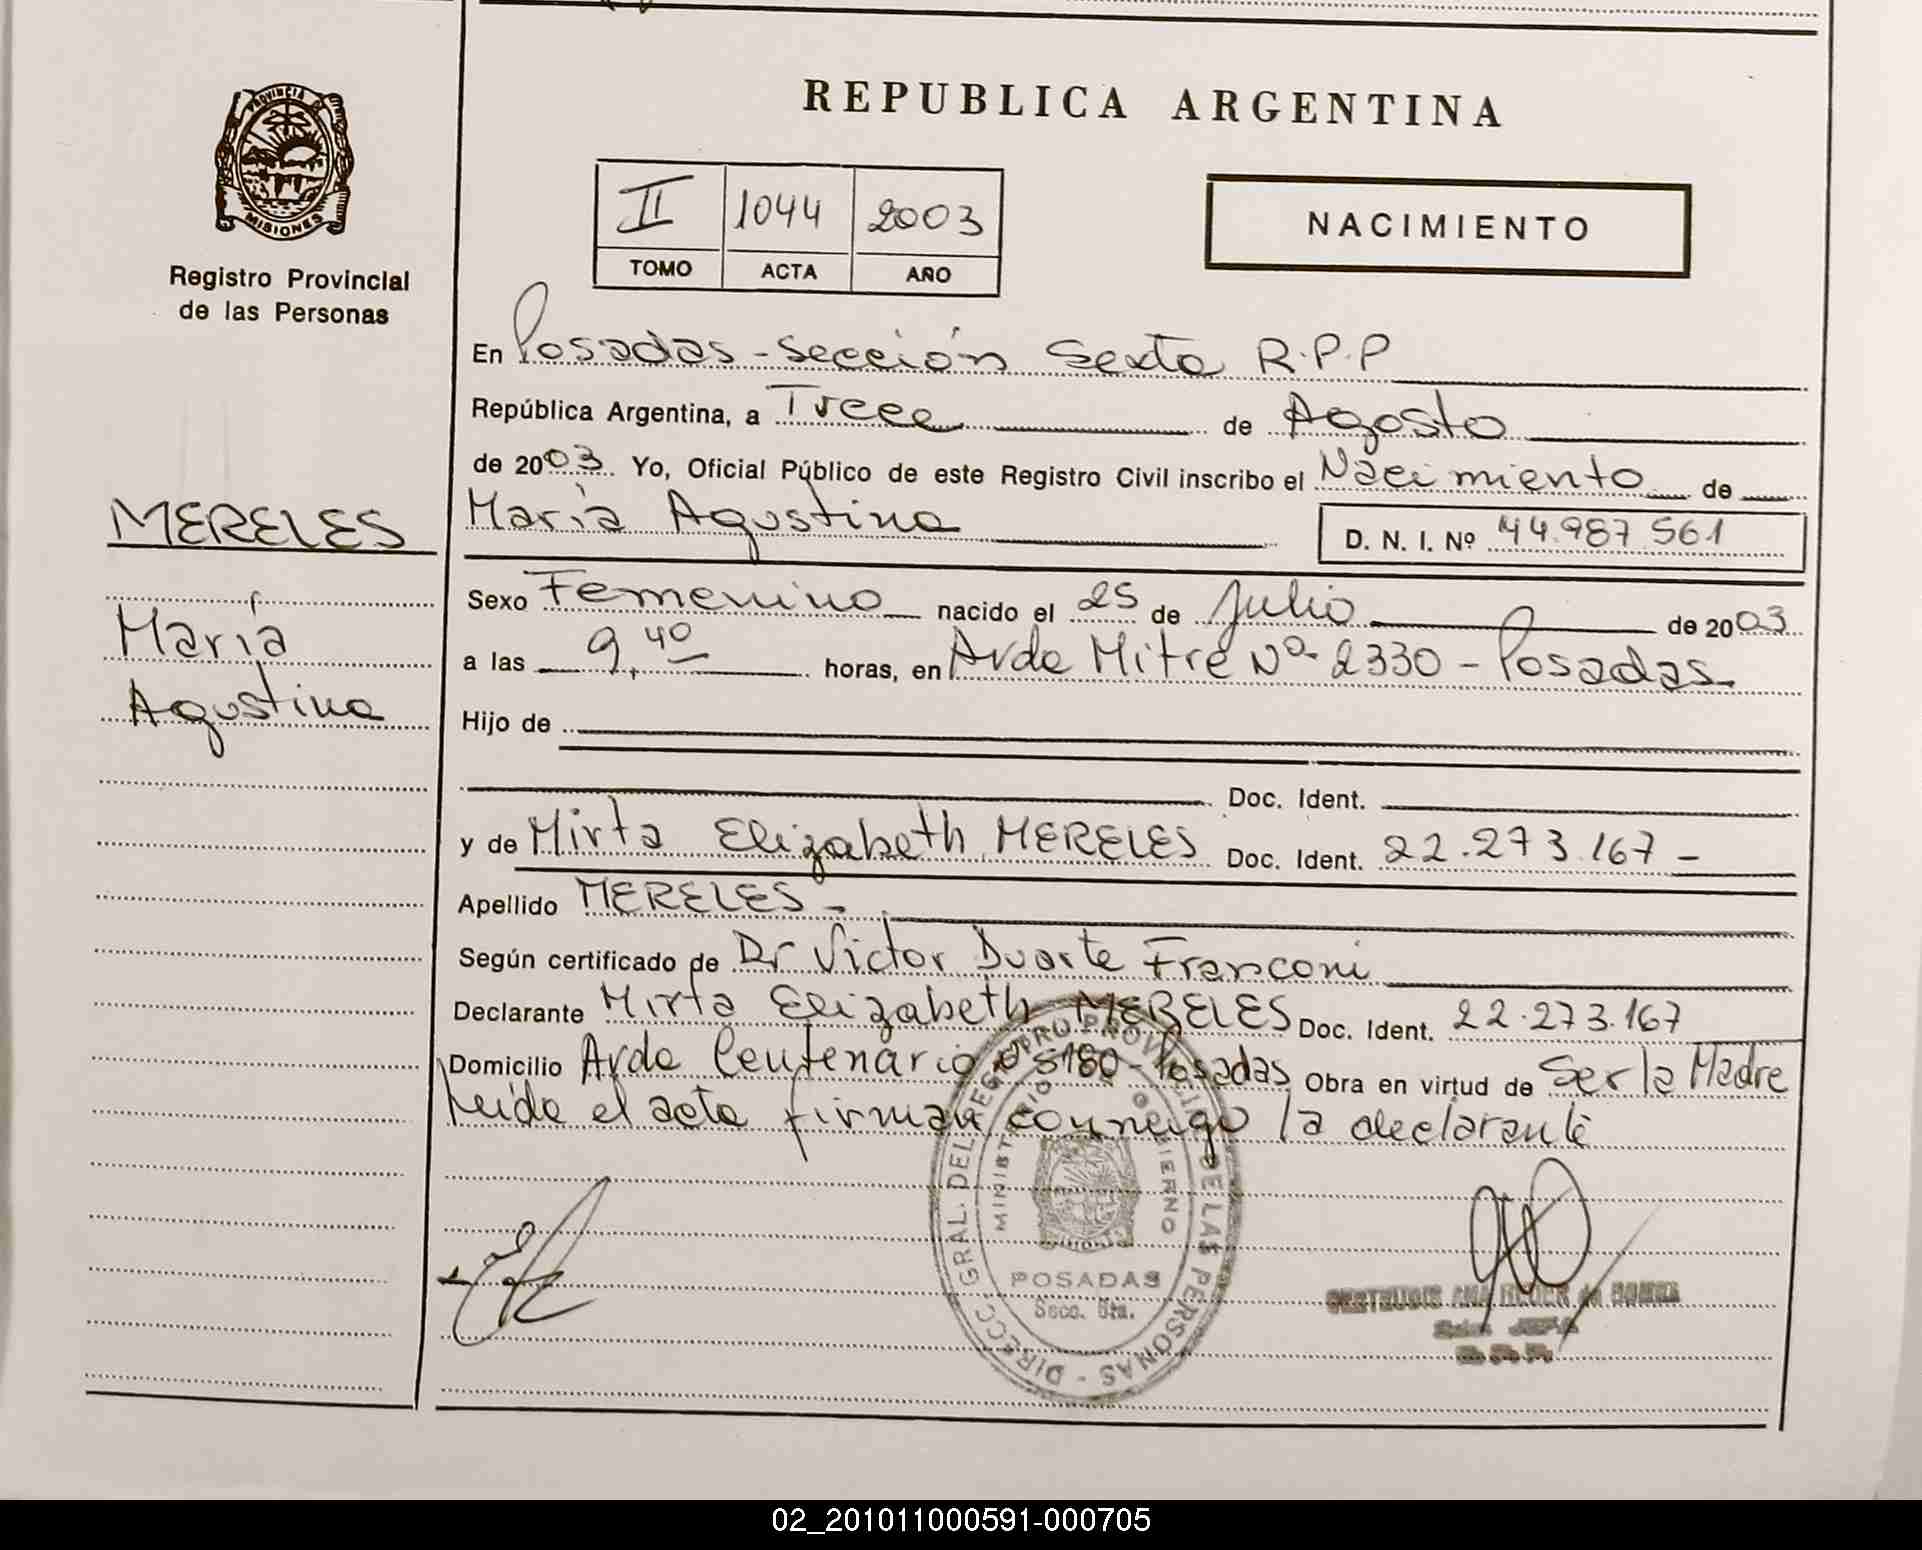 REPUBLICA ARGENTINA
PROVINCIA DE
MISIONES
Registro Provincial
de las Personas
II 1044 2003
TOMO ACTA AÑO
NACIMIENTO
En Posadas - Sección Sexta R.P.P
República Argentina, a Trece de Agosto
de 2003 Yo, Oficial Público de este Registro Civil inscribo el Nacimiento de
María Agustina D. N. I. Nº 44.987.561
MERELES
María
Agustina
Sexo Femenino nacido el 25 de Julio de 2003
a las 9,40 horas, en Avda Mitre Nº 2330 - Posadas
Hijo de
Doc. Ident.
y de Mirta Elizabeth MERELES Doc. Ident. 22.273.167 -
Apellido MERELES -
Según certificado de Dr Victor Duarte Franconi
Declarante Mirta Elizabeth MERELES Doc. Ident. 22.273.167
Domicilio Avda Centenario 5180 - Posadas Obra en virtud de Ser la Madre
Leida el acta firman conmigo la declarante
DIRECC. GRAL. DEL REGISTRO PROVINCIAL DE LAS PERSONAS
MINISTERIO GOBIERNO
POSADAS
Secc. 6ta.
02_201011000591-000705